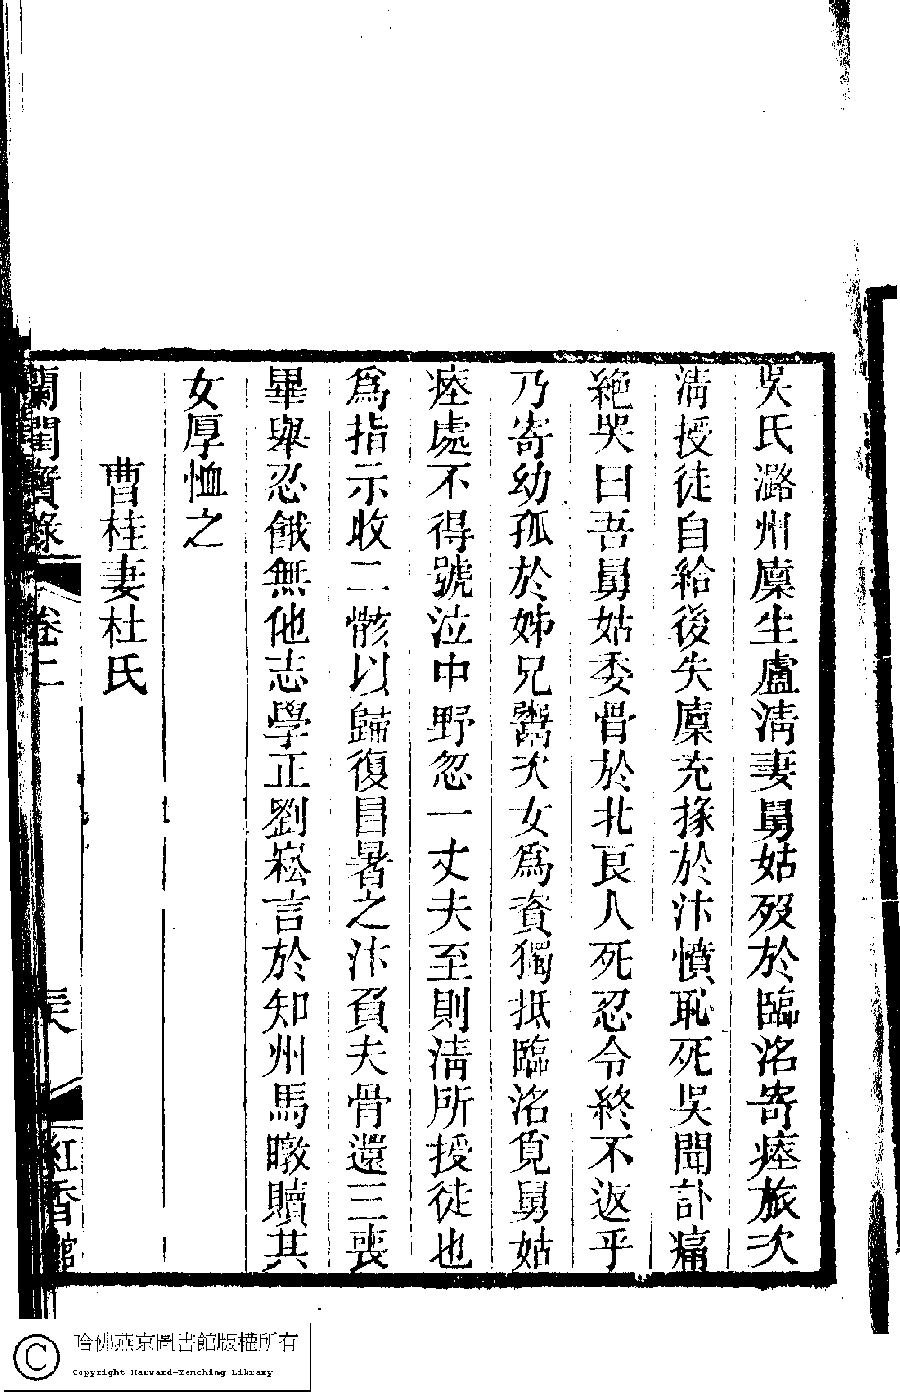 吳氏潞州廩生盧淸妻舅姑歿於臨洺寄瘞旅次
淸授徒自給後失廩充掾於汴憤恥死吳聞訃痛
絶哭曰吾舅姑委骨於北良人死忍令終不返乎
乃寄幼孤於姊兄鬻次女爲資獨抵臨洺覓舅姑
瘞處不得號泣中野忽一丈夫至則淸所授徒也
爲指示收二骸以歸復冒暑之汴負夫骨還三喪
畢舉忍餓無他志學正劉崧言於知州馬暾贖其
女厚恤之
曹桂妻杜氏
蘭閨寶錄 卷二 紅香館
哈佛燕京圖書館版權所有
Copyright Harvard-Yenching Library